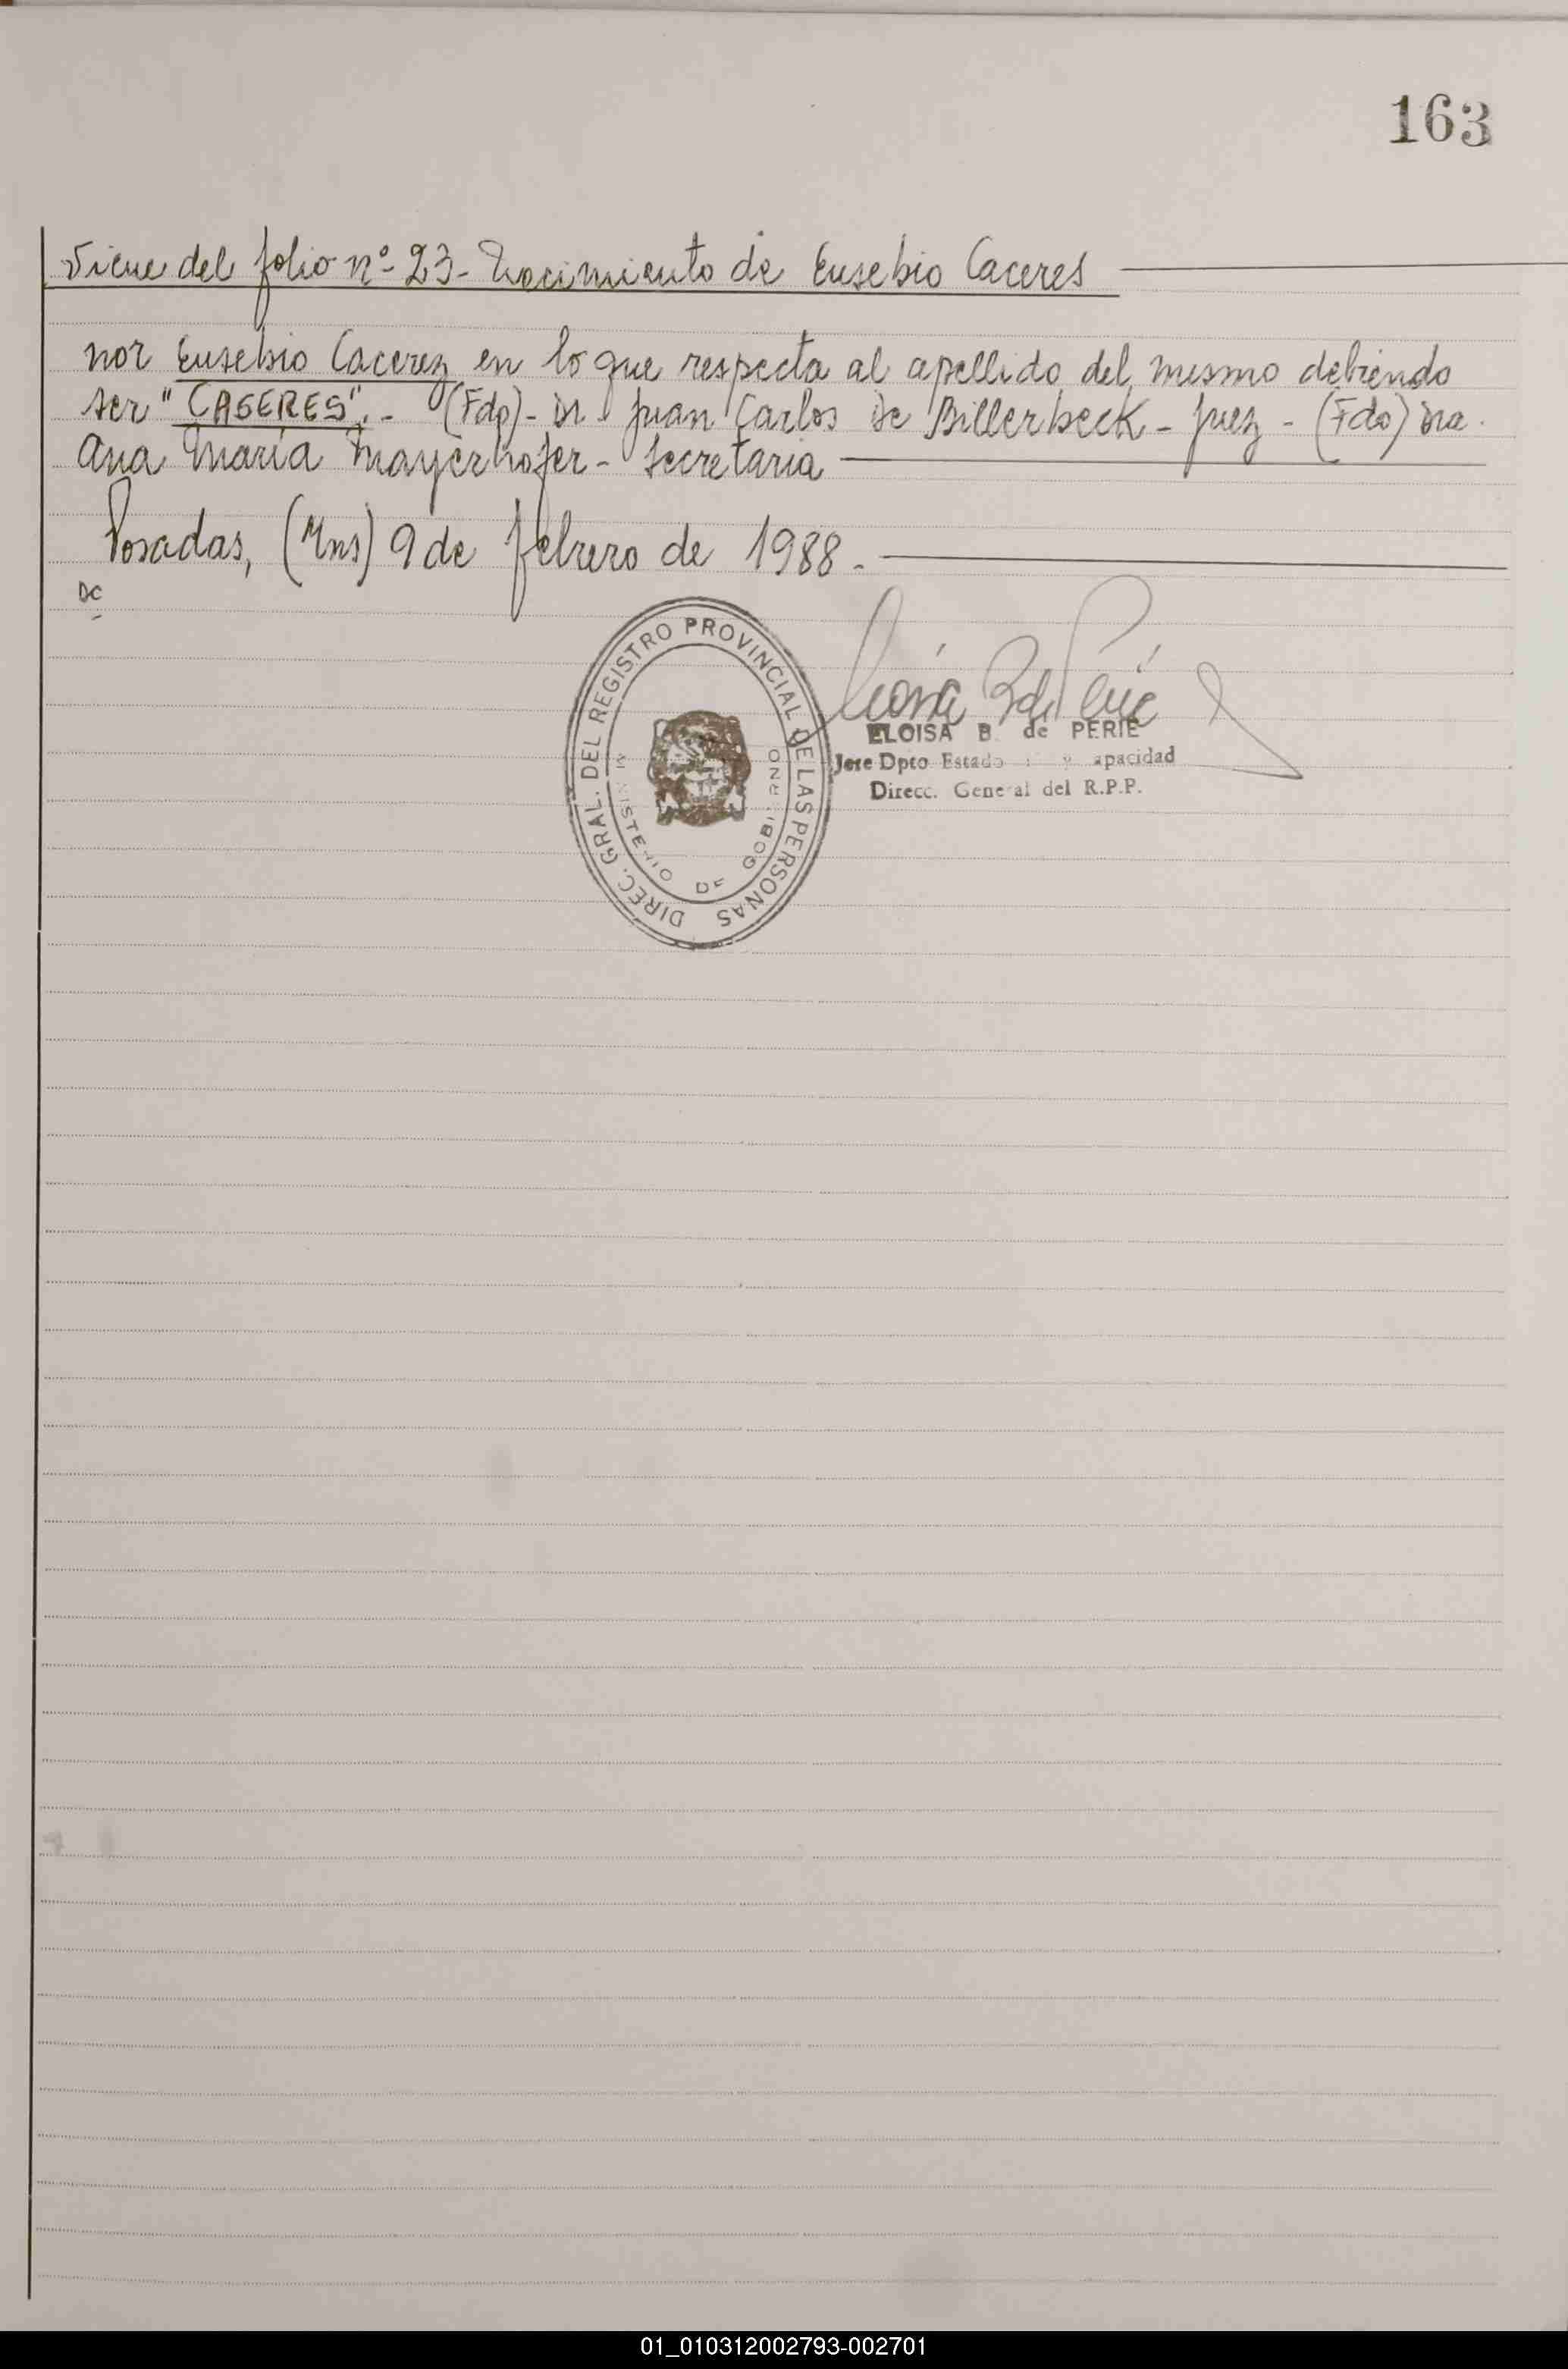 163
Viene del folio nº 23- Nacimiento de Eusebio Caceres
nor Eusebio Cacerez en lo que respecta al apellido del mismo debiendo
ser "CASERES".- (Fdo)- Dr Juan Carlos De Billerbeck - Juez - (Fdo) Dra.
Ana María Mayerhofer - Secretaria
Posadas, (Mns) 9 de febrero de 1988.-
DC
DIREC. GRAL. DEL REGISTRO PROVINCIAL DE LAS PERSONAS
MINISTERIO DE GOBIERNO
ELOISA B. de PERIE
Jefe Dpto Estado y apacidad
Direcc. General del R.P.P.
01_010312002793-002701